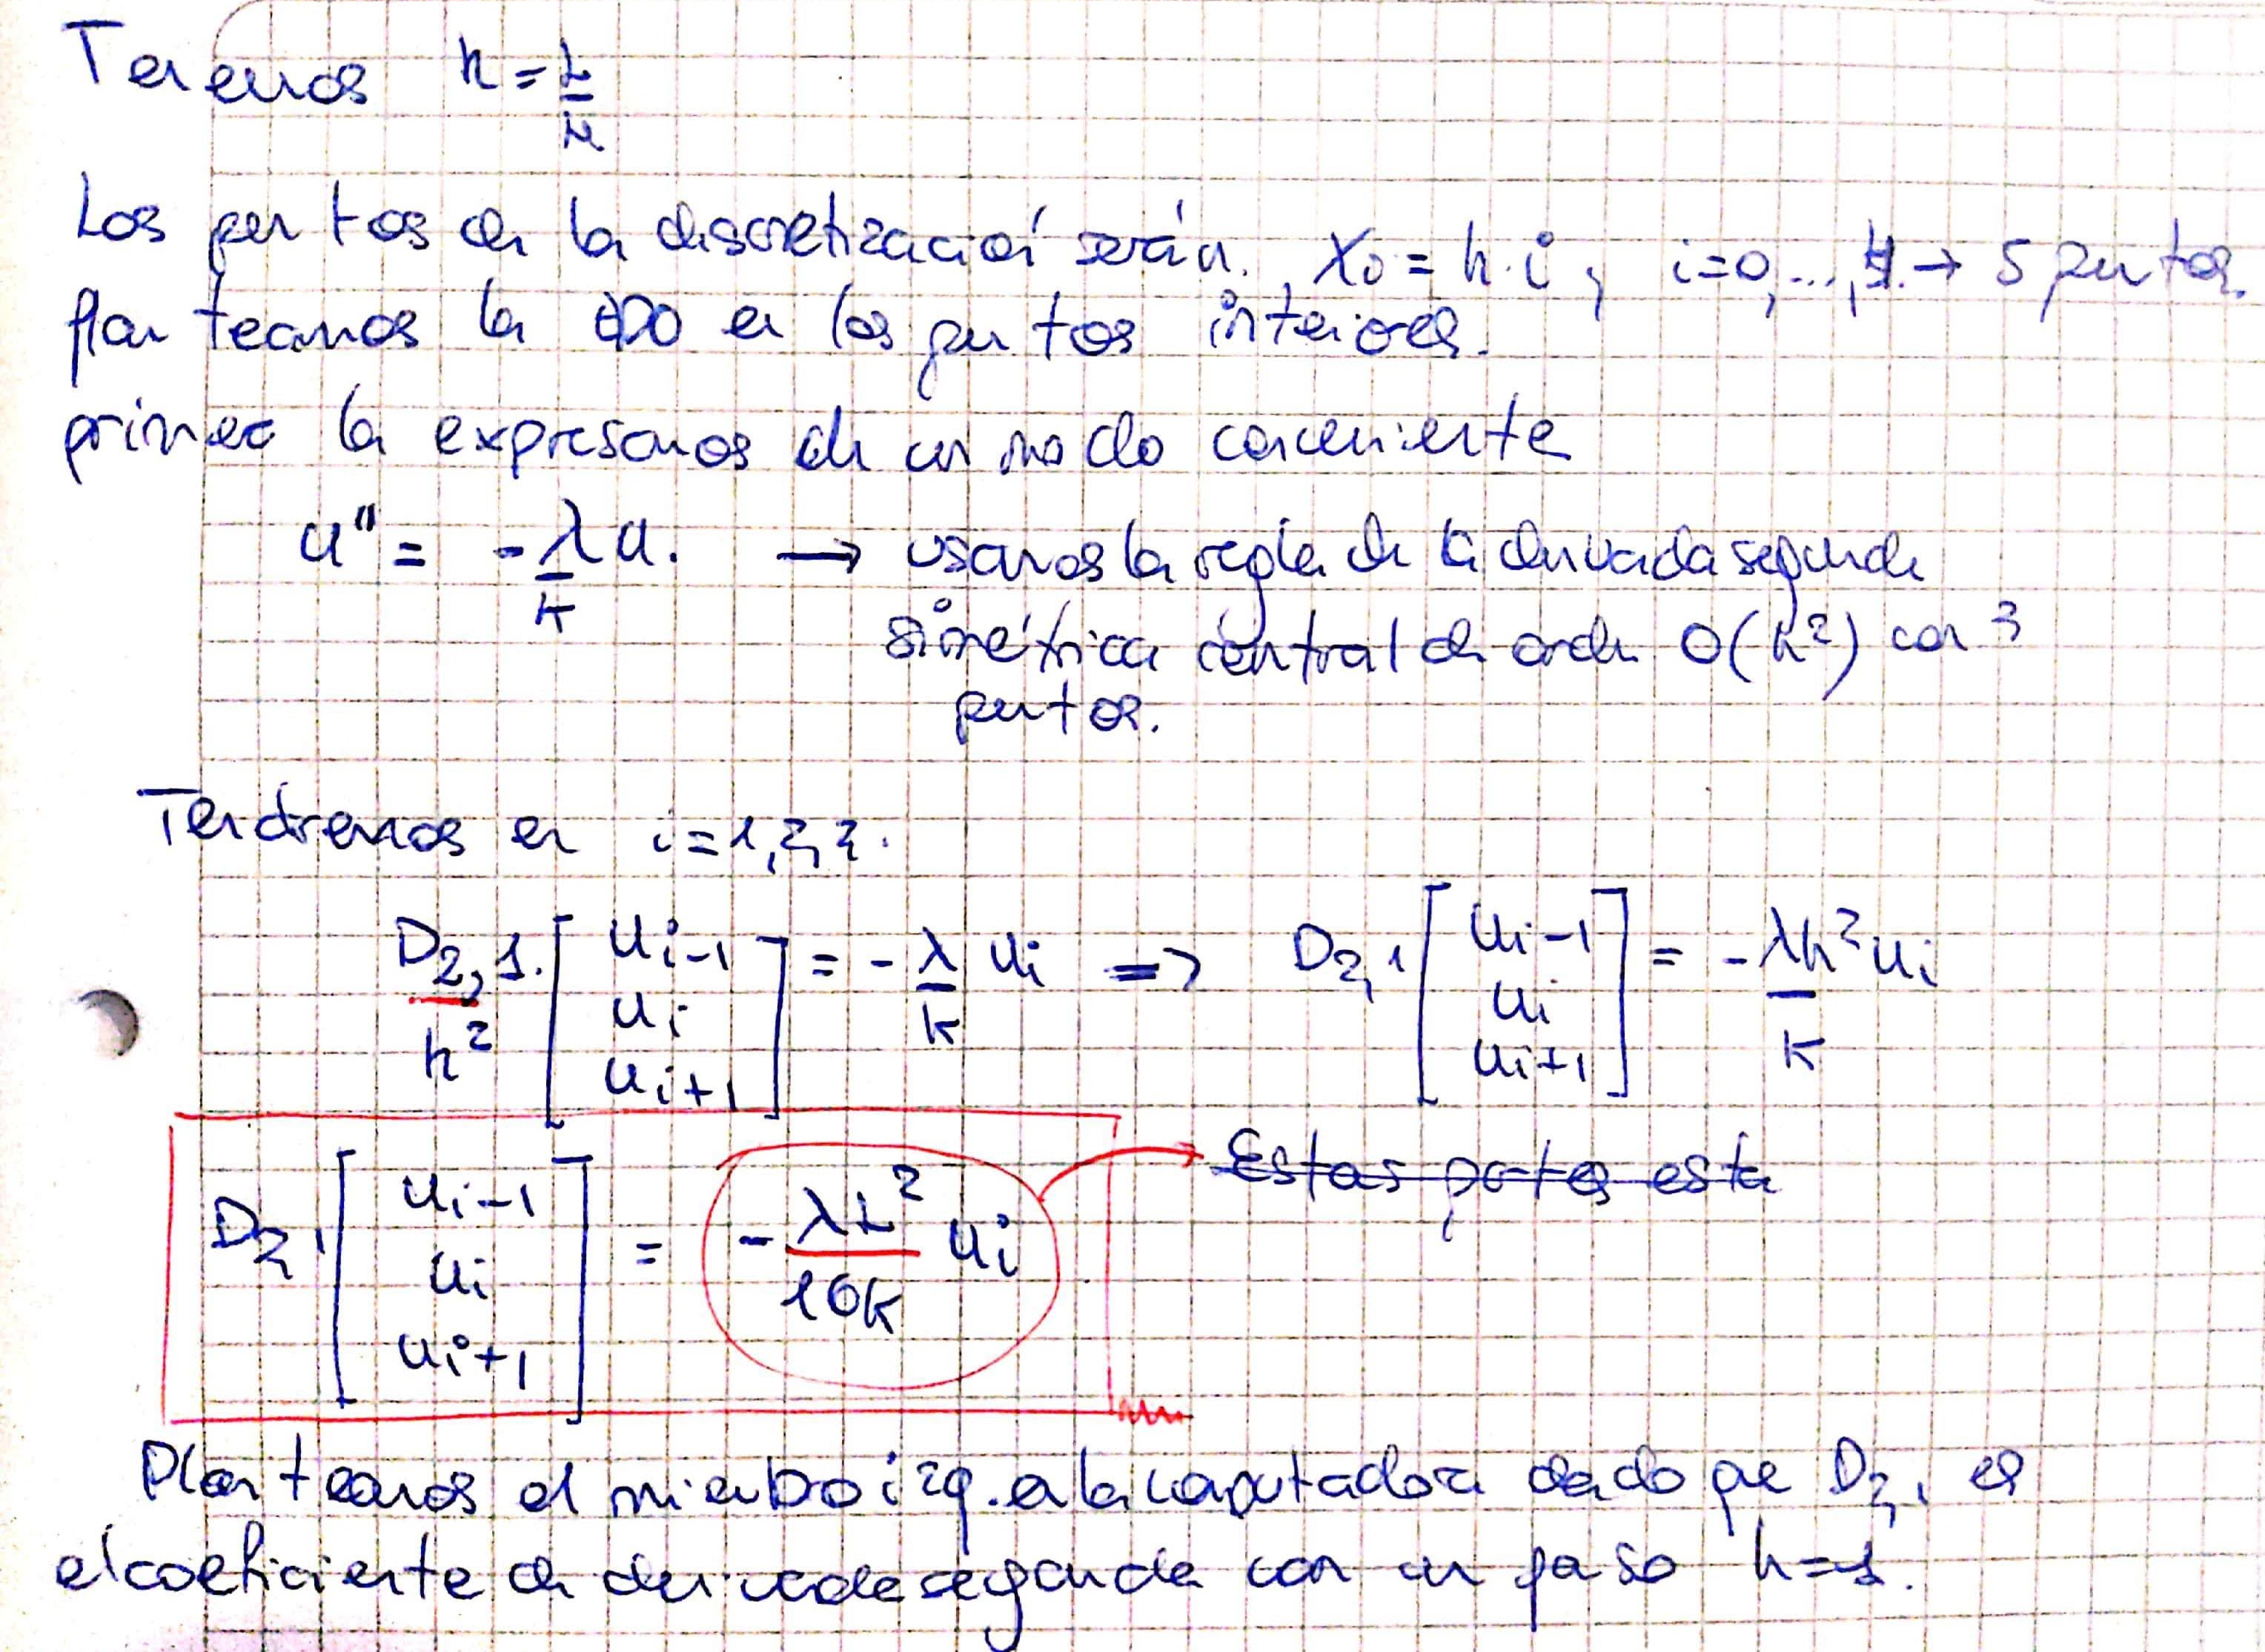 Tenemos h = L/N
Los puntos de la discretización serán. Xi = h·i, i=0,...,4. → 5 puntos.
planteamos la EDO en los puntos interiores.
primero la expresamos de un modo conveniente
u'' = -λ/k u. → usamos la regla de la derivada segunda
simétrica central de orden O(h²) con 3
puntos.
Tendremos en i=1,2,3.
D2,1/h² · [ui-1 ui ui+1] = -λ/k ui => D2,1 [ui-1 ui ui+1] = -λh²/k ui
D2,1 [ui-1 ui ui+1] = -λL²/16k ui → Estas partes esta
Planteamos el miembro izq. a la computadora dado que D2,1 es
el coeficiente de derivada segunda con un paso h=1.